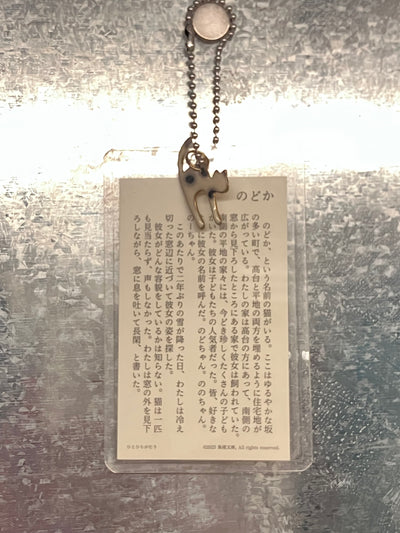 のどか
のどか、という名前の猫がいる。ここはゆるやかな坂
の多い町で、高台と平地の両方を埋めるように住宅地が
広がっている。わたしの家は高台の方にあって、南側の
窓から見下ろしたところにある家で彼女は飼われていた。
南側の平地の家々には、今どき珍しくたくさんの子ども
がいた。彼女は子どもたちの人気者だった。皆、好きな
に彼女の名前を呼んだ。のどちゃん。ののちゃん。
のーちゃん。
このあたりで二年ぶりの雪が降った日、わたしは冷え
切った窓辺に近づいて彼女の姿を探した。
彼女がどんな容貌をしているかは知らない。猫は一匹
も見当たらず、声もしなかった。わたしは窓の外を見下
ろしながら、窓に息を吐いて長閑、と書いた。
ひとひらがむう
©2023 飯庭文庫, All rights reserved.